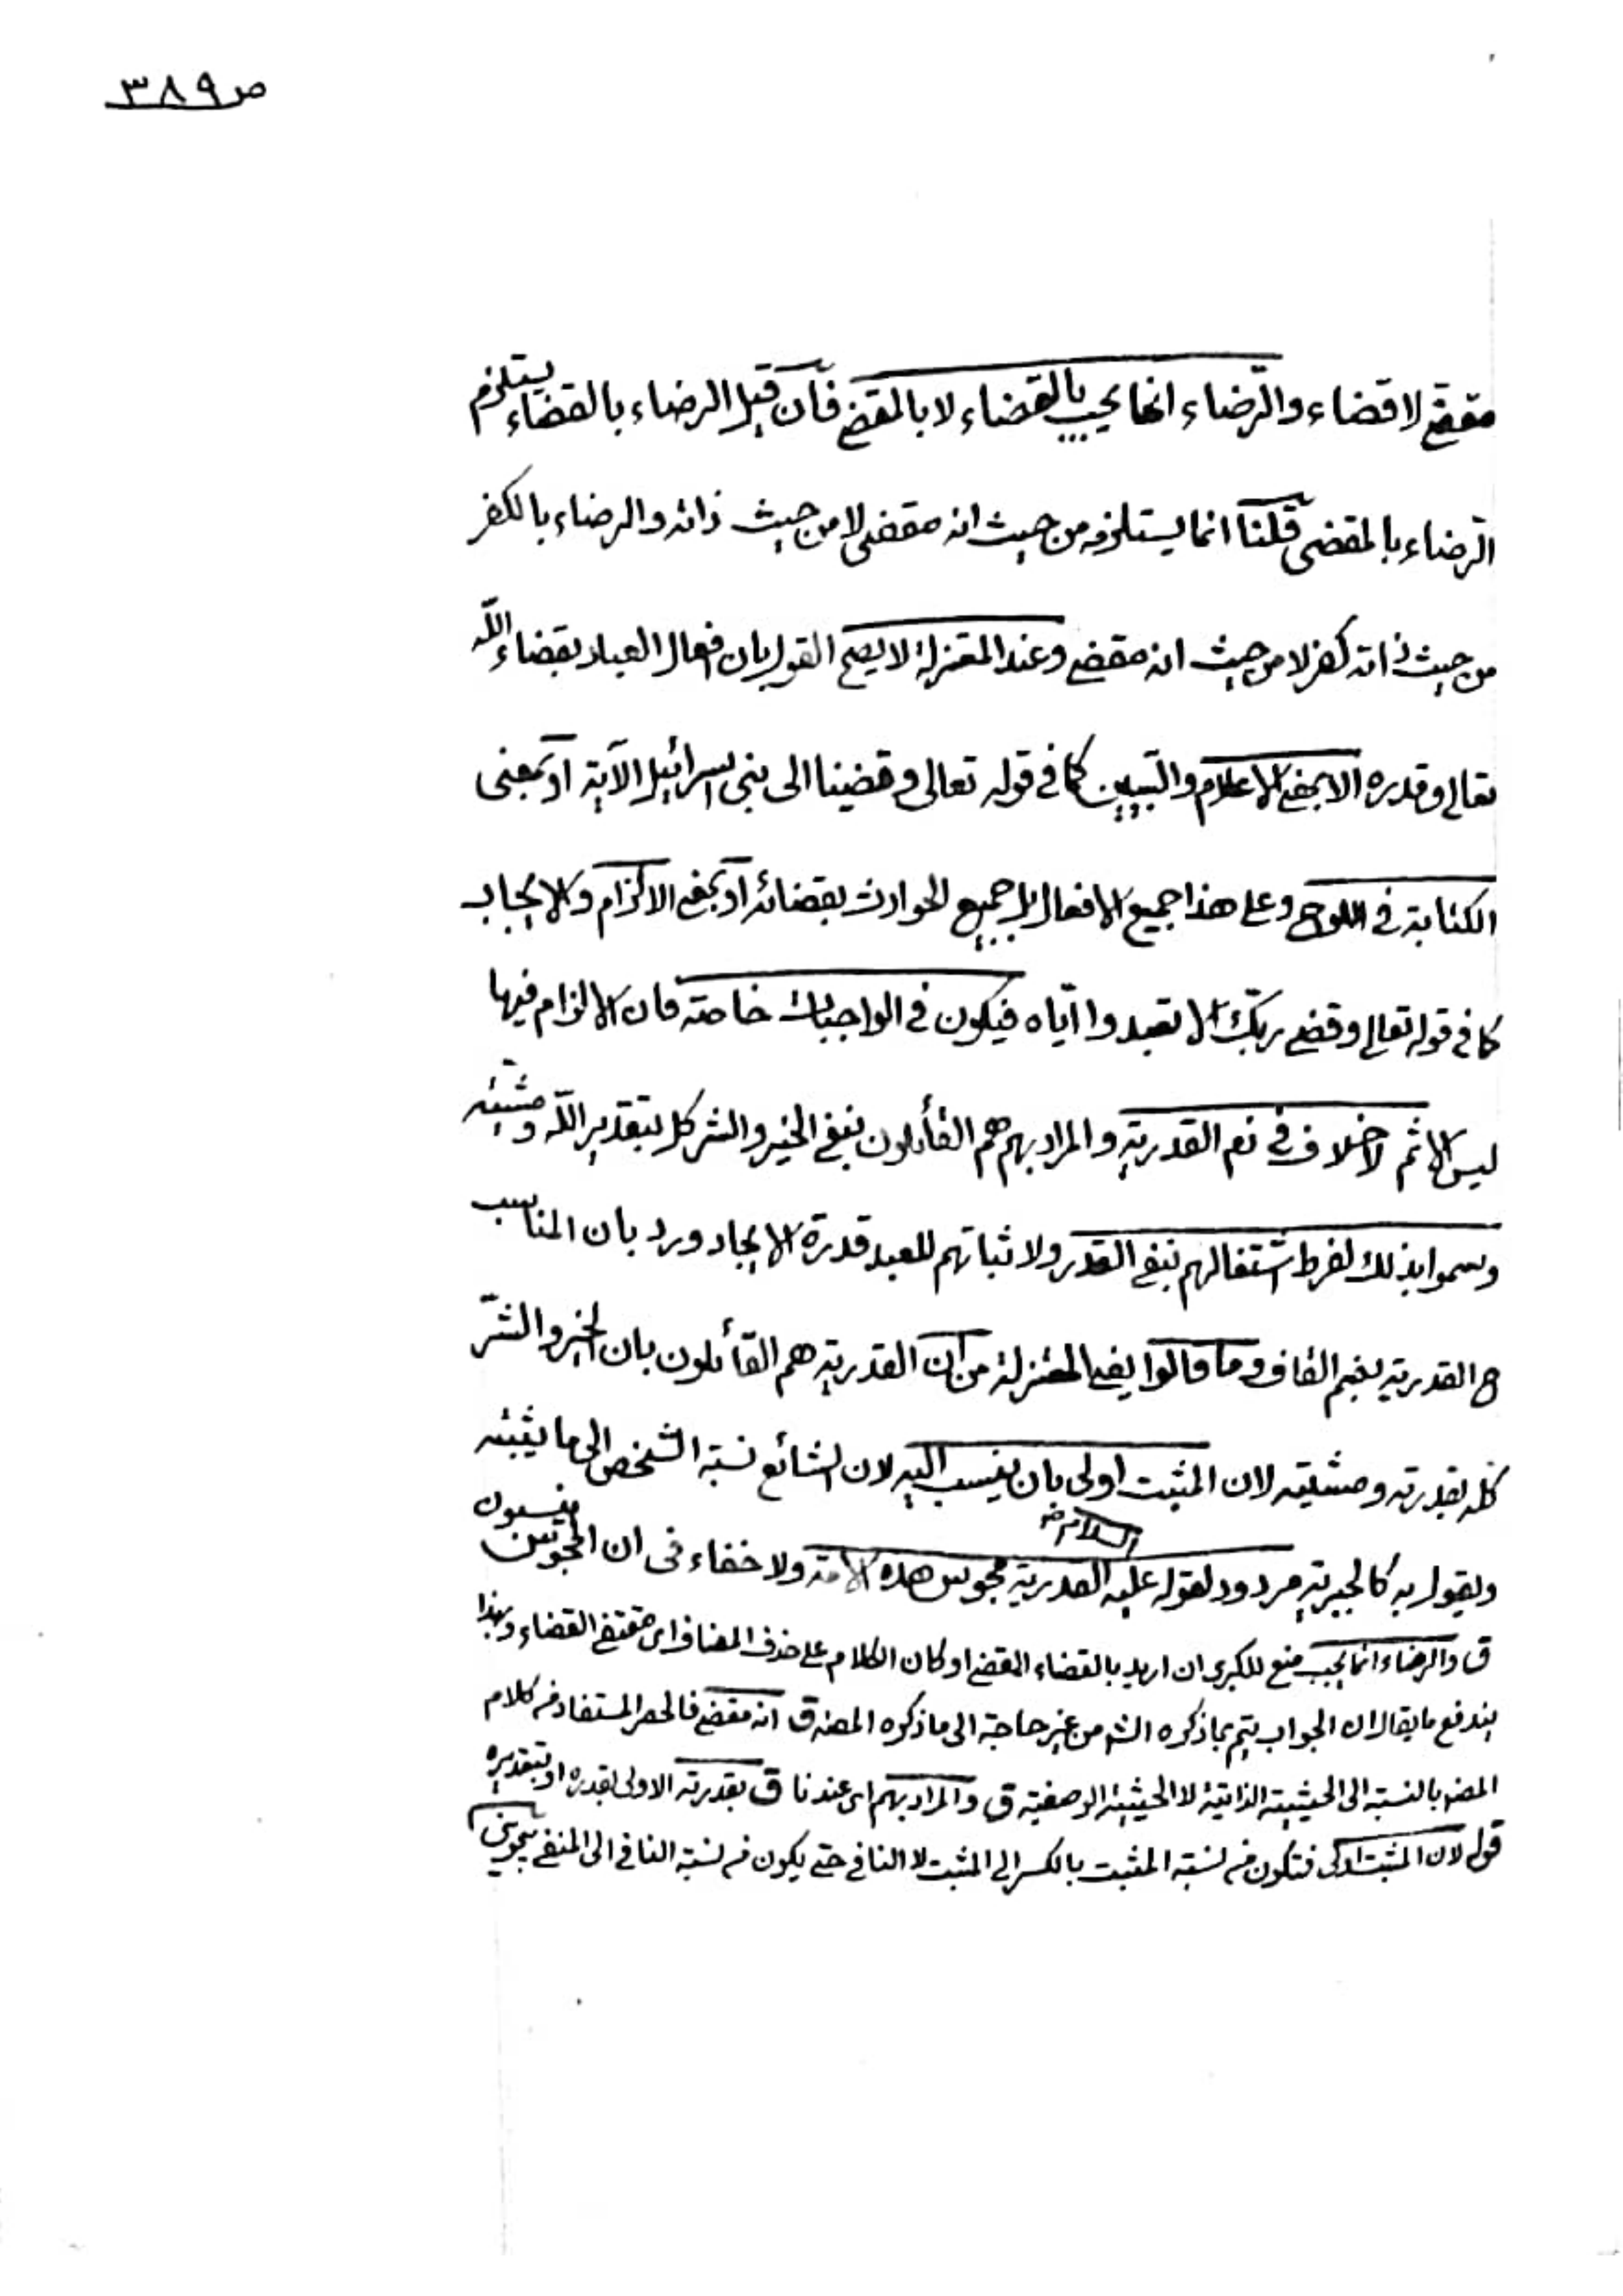 ص ٣٨٩
مقضي لا قضاء والرّضاء انما يجب بالقضاء لا بالمقضي فان قيل الرضاء بالقضاء يستلزم
الرّضاء بالمقضى قلنا انما يستلزمه من حيث انه مقضى لا من حيث ذاته والرضاء بالكفر
من حيث ذاته كفر لا من حيث انه مقضي وعند المعتزلة لا يصح القول بان افعال العباد بقضاء اللّه
تعالى وقدره الا بمعنى الاعلام والتبيين كما في قوله تعالى وقضينا الى بنى اسرائيل الآية او بمعنى
الكتابة في اللوح وعلى هذا جميع الافعال بل جميع الحوادث بقضائه او بمعنى الالزام والايجاب
كما في قوله تعالى وقضى ربّك الا تعبدوا ايّاه فيكون في الواجبات خاصة فان الالزام فيها
ليس الا ثم لا خلاف في ذم القدرية والمراد بهم هم القائلون بنفي الخير والشر كل بتقدير اللّه ومشيئته
وسموا بذلك لفرط اشتغالهم بنفي القدر ولاثباتهم للعبد قدرة الايجاد ورد بان المناسب
ح القدرية بضم القاف وما قالوا يعني المعتزلة من ان القدرية هم القائلون بان الخير والشرّ
كله بقدرته ومشيته لان المثبت اولى بان ينسب اليه لان الشائع نسبة الشخص الى ما يثبته
ويقول به كالجبرية مردود لقوله عليه السلام القدرية مجوس هذه الامة ولا خفاء فى ان المجوس ينسبون
ق والرضاء انما يجب منع للكبرى ان اريد بالقضاء المقضي او كان الكلام على حذف المضاف اى مقتضي القضاء وبهذا
يندفع ما يقال ان الجواب يتم بما ذكره الشم من غير حاجة الى ما ذكره المصنف ق انه مقضي فالحصر المستفاد من كلام
المصنف بالنسبة الى الحيثية الذاتية لا الحيثية الوصفية ق والمراد بهم اى عندنا ق بقدرته الاولى بقدره او بتقديره
قوله لان المثبت اولى فتكون من نسبة المثبت بالكسر الى المثبت لا النافي حتى يكون من نسبة النافي الى المنفي